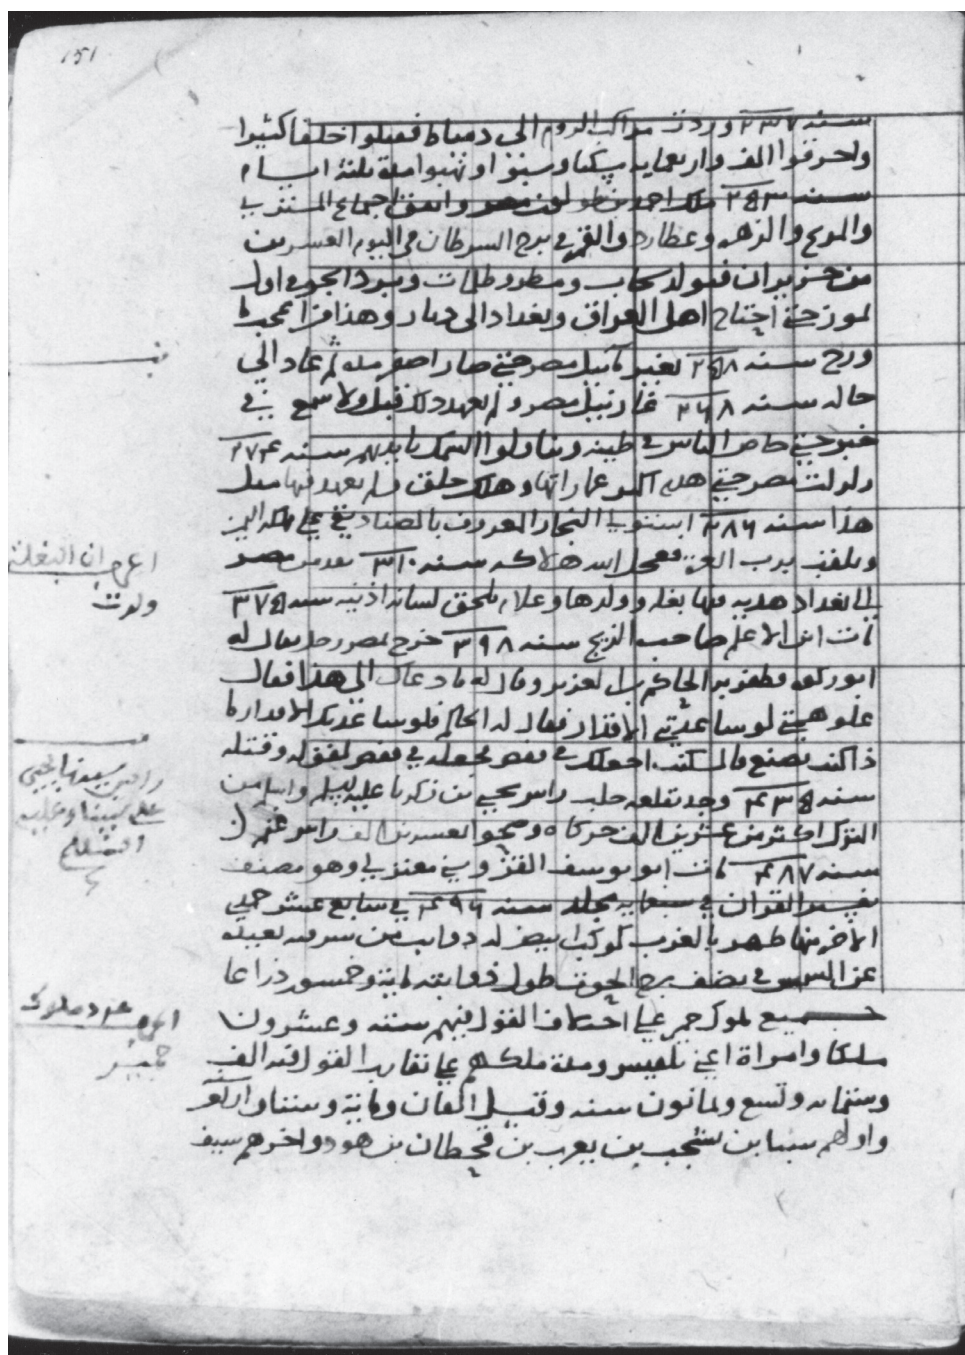 151
سنه ٢٣٧ وردت مراكب الروم الى دمياط فقتلوا خلقا كثيرا
واحرقوا الف واربعمايه وسبوا ونهبوا مدة ثلثة ايام
سنه ملك احمد بن طولون مصر واتفق اجتماع المشتري
والمريخ والزهره وعطارد والقمر في برج السرطان في اليوم العشرين
من حزيران فتولد سحاب ومطر وظلمات وبرد الجو في اول
تموز حتى احتاج اهل العراق وبغداد الى دثار وهذا من اعجب ما
ورخ سنه تغير ماء نيل مصر حتى صار اصفر مده ثم عاد الى
حاله سنه ٢٦٨ غار نيل مصر ولم يعهد ذلك قبل ولا سمع في
خبر حتى خاض الناس في طينه وتناولوا السمك بايديهم سنه
زلزلت مصر حتى هدم اكثر عماراتها وهلك خلق ولم يعهد فيها مثل
هذا سنه ٢٨٦ استولى النجار المعروف بالصناديقي على مملكه اليمن
وتلقب برب العزه فعجل الله هلاكه سنه ٣١٠ من مصر
الى بغداد هديه فيها بغله وولدها وغلام يلحق لسانه اذنيه سنه
مات ابن الاعلم صاحب الزيج سنه ٣٩٨ خرج بمصر رجل يقال له
ابو ركوه فظفر به الحاكم بن العزيز وقال له ما دعاك الى هذا فقال
علو همتي لو ساعدتني الاقدار فقال له الحاكم فلو ساعدتك الاقدار ما
ذا كنت تصنع قال كنت اجعلك في قفص فجعله في قفص لقوله وقتله
سنه وجد بقلعه حلب راس يحيى بن زكريا عليه السلم واسلم من
الترك اكثر من عشرين الف خركاه وضحوا بعشرين الف راس غنم
سنه مات ابو يوسف القزويني معتزلي وهو مصنف
تفسير القران في سبعمايه مجلد سنه في سابع عشر جمدي
الاخر منها ظهر بالغرب كوكب ابيض له دوابه من شرقه بعيده
عن الشمس في نصف برج الحوت طول ذوابته مايه وخمسون ذراعا
جميع ملوك حمير على اختلاف القول فيهم ستة وعشرون
ملكا وامراة اعني بلقيس ومدة ملكهم على تقارب القول فيه الف
وستمايه وتسع وثمانون سنه وقيل الفان وماية وستتان
واولهم سبا بن يشجب بن يعرب بن قحطان بن هود واخرهم سيف
اعرف ان البغلة
ولدت
راس سيدنا يحيى
على نبينا وعليه
السلام
اعرف عدد ملوك
حمير